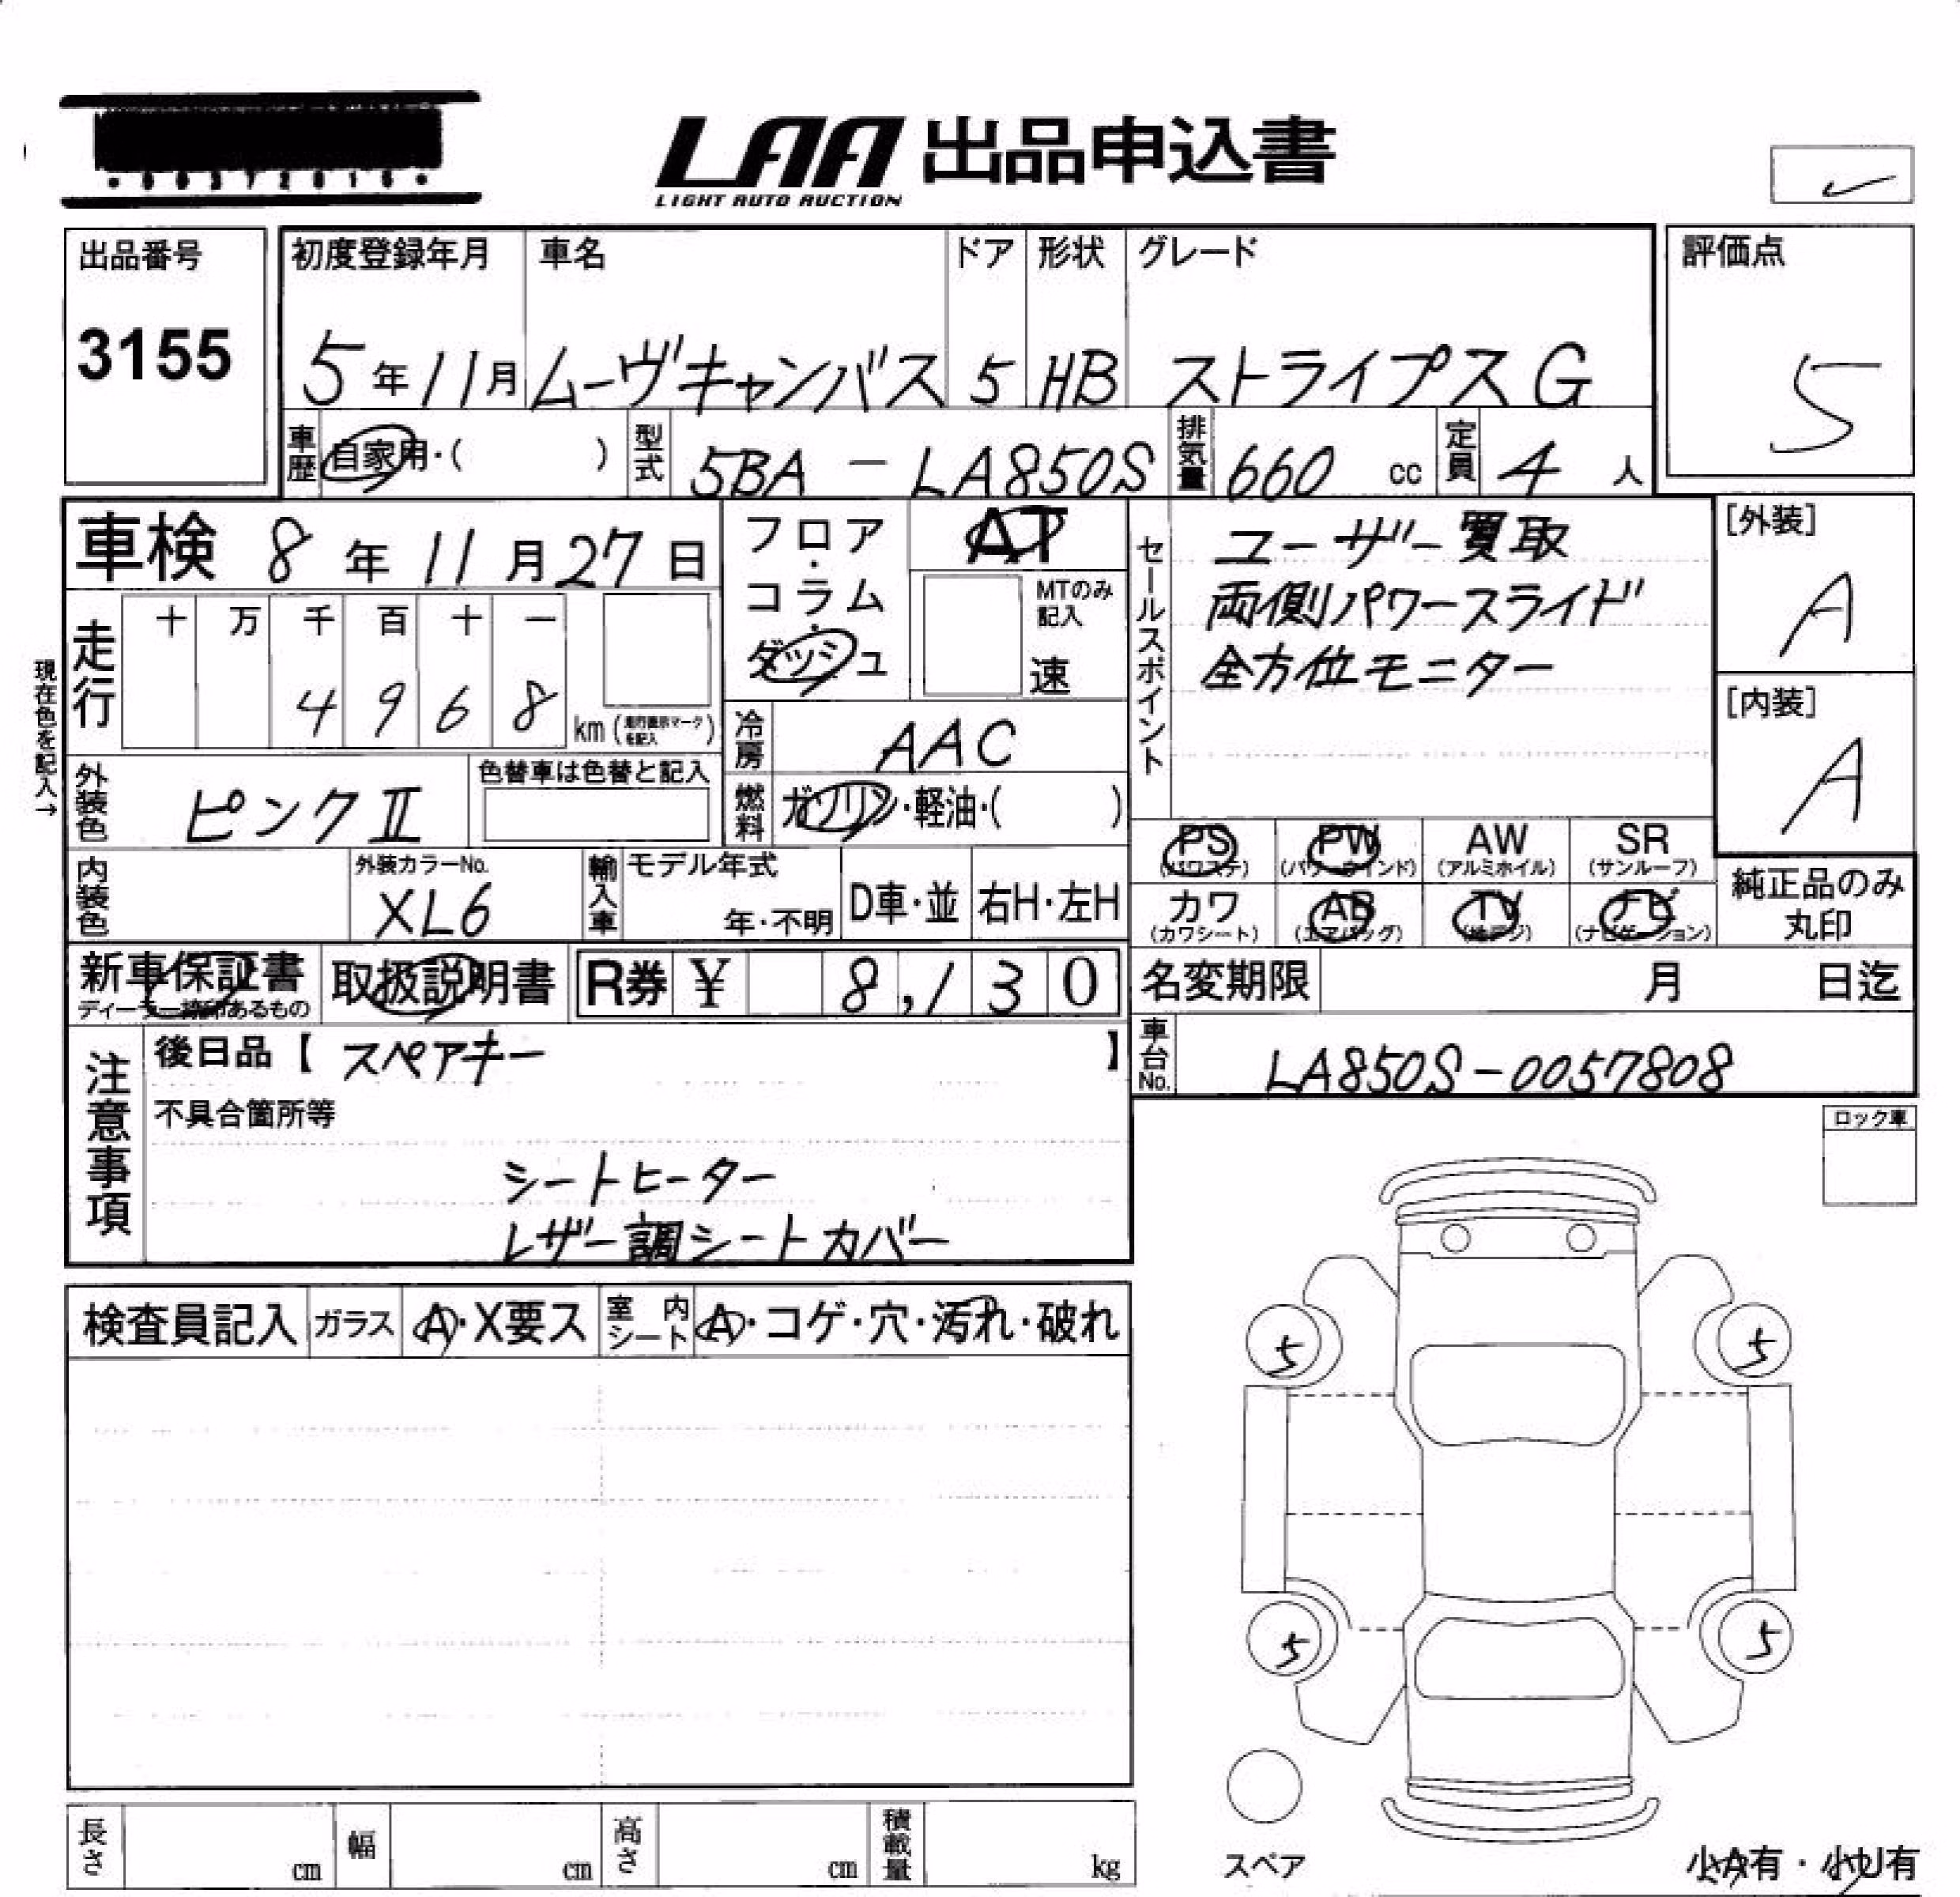 LAA 出品申込書
LIGHT AUTO AUCTION
出品番号
3155
初度登録年月 車名 ドア 形状 グレード
5年11月 ムーヴキャンバス 5 HB ストライプスG
評価点
5
車歴 自家用・( ) 型式 5BA-LA850S 排気量 660 cc 定員 4 人
車検 8年11月27日
フロア・コラム・ダッシュ
AT
MTのみ記入
速
セールスポイント
ユーザー買取
両側パワースライド
全方位モニター
[外装]
A
[内装]
A
現在色を記入→
走行
十 万 千 百 十 一
4 9 6 8
km(走行表示マークを記入)
冷房 AAC
外装色 ピンクⅡ
色替車は色替と記入
燃料 ガソリン・軽油・( )
PS PW AW SR
(パワステ) (パワーウインド) (アルミホイル) (サンルーフ)
カワ AB TV ナビ
(カワシート) (エアバッグ) (地デジ) (ナビゲーション)
純正品のみ
丸印
内装色
外装カラーNo.
XL6
輸入車 モデル年式
年・不明
D車・並 右H・左H
新車保証書
ディーラー捺印あるもの
取扱説明書
R券 ¥ 8,130
名変期限 月 日迄
車台No. LA850S-0057808
注意事項
後日品【 スペアキー 】
不具合箇所等
シートヒーター
レザー調シートカバー
ロック車
検査員記入 ガラス A・X要ス 室内シート A・コゲ・穴・汚れ・破れ
5 5
5 5
スペア
長さ cm 幅 cm 高さ cm 積載量 kg
小A有・小U有